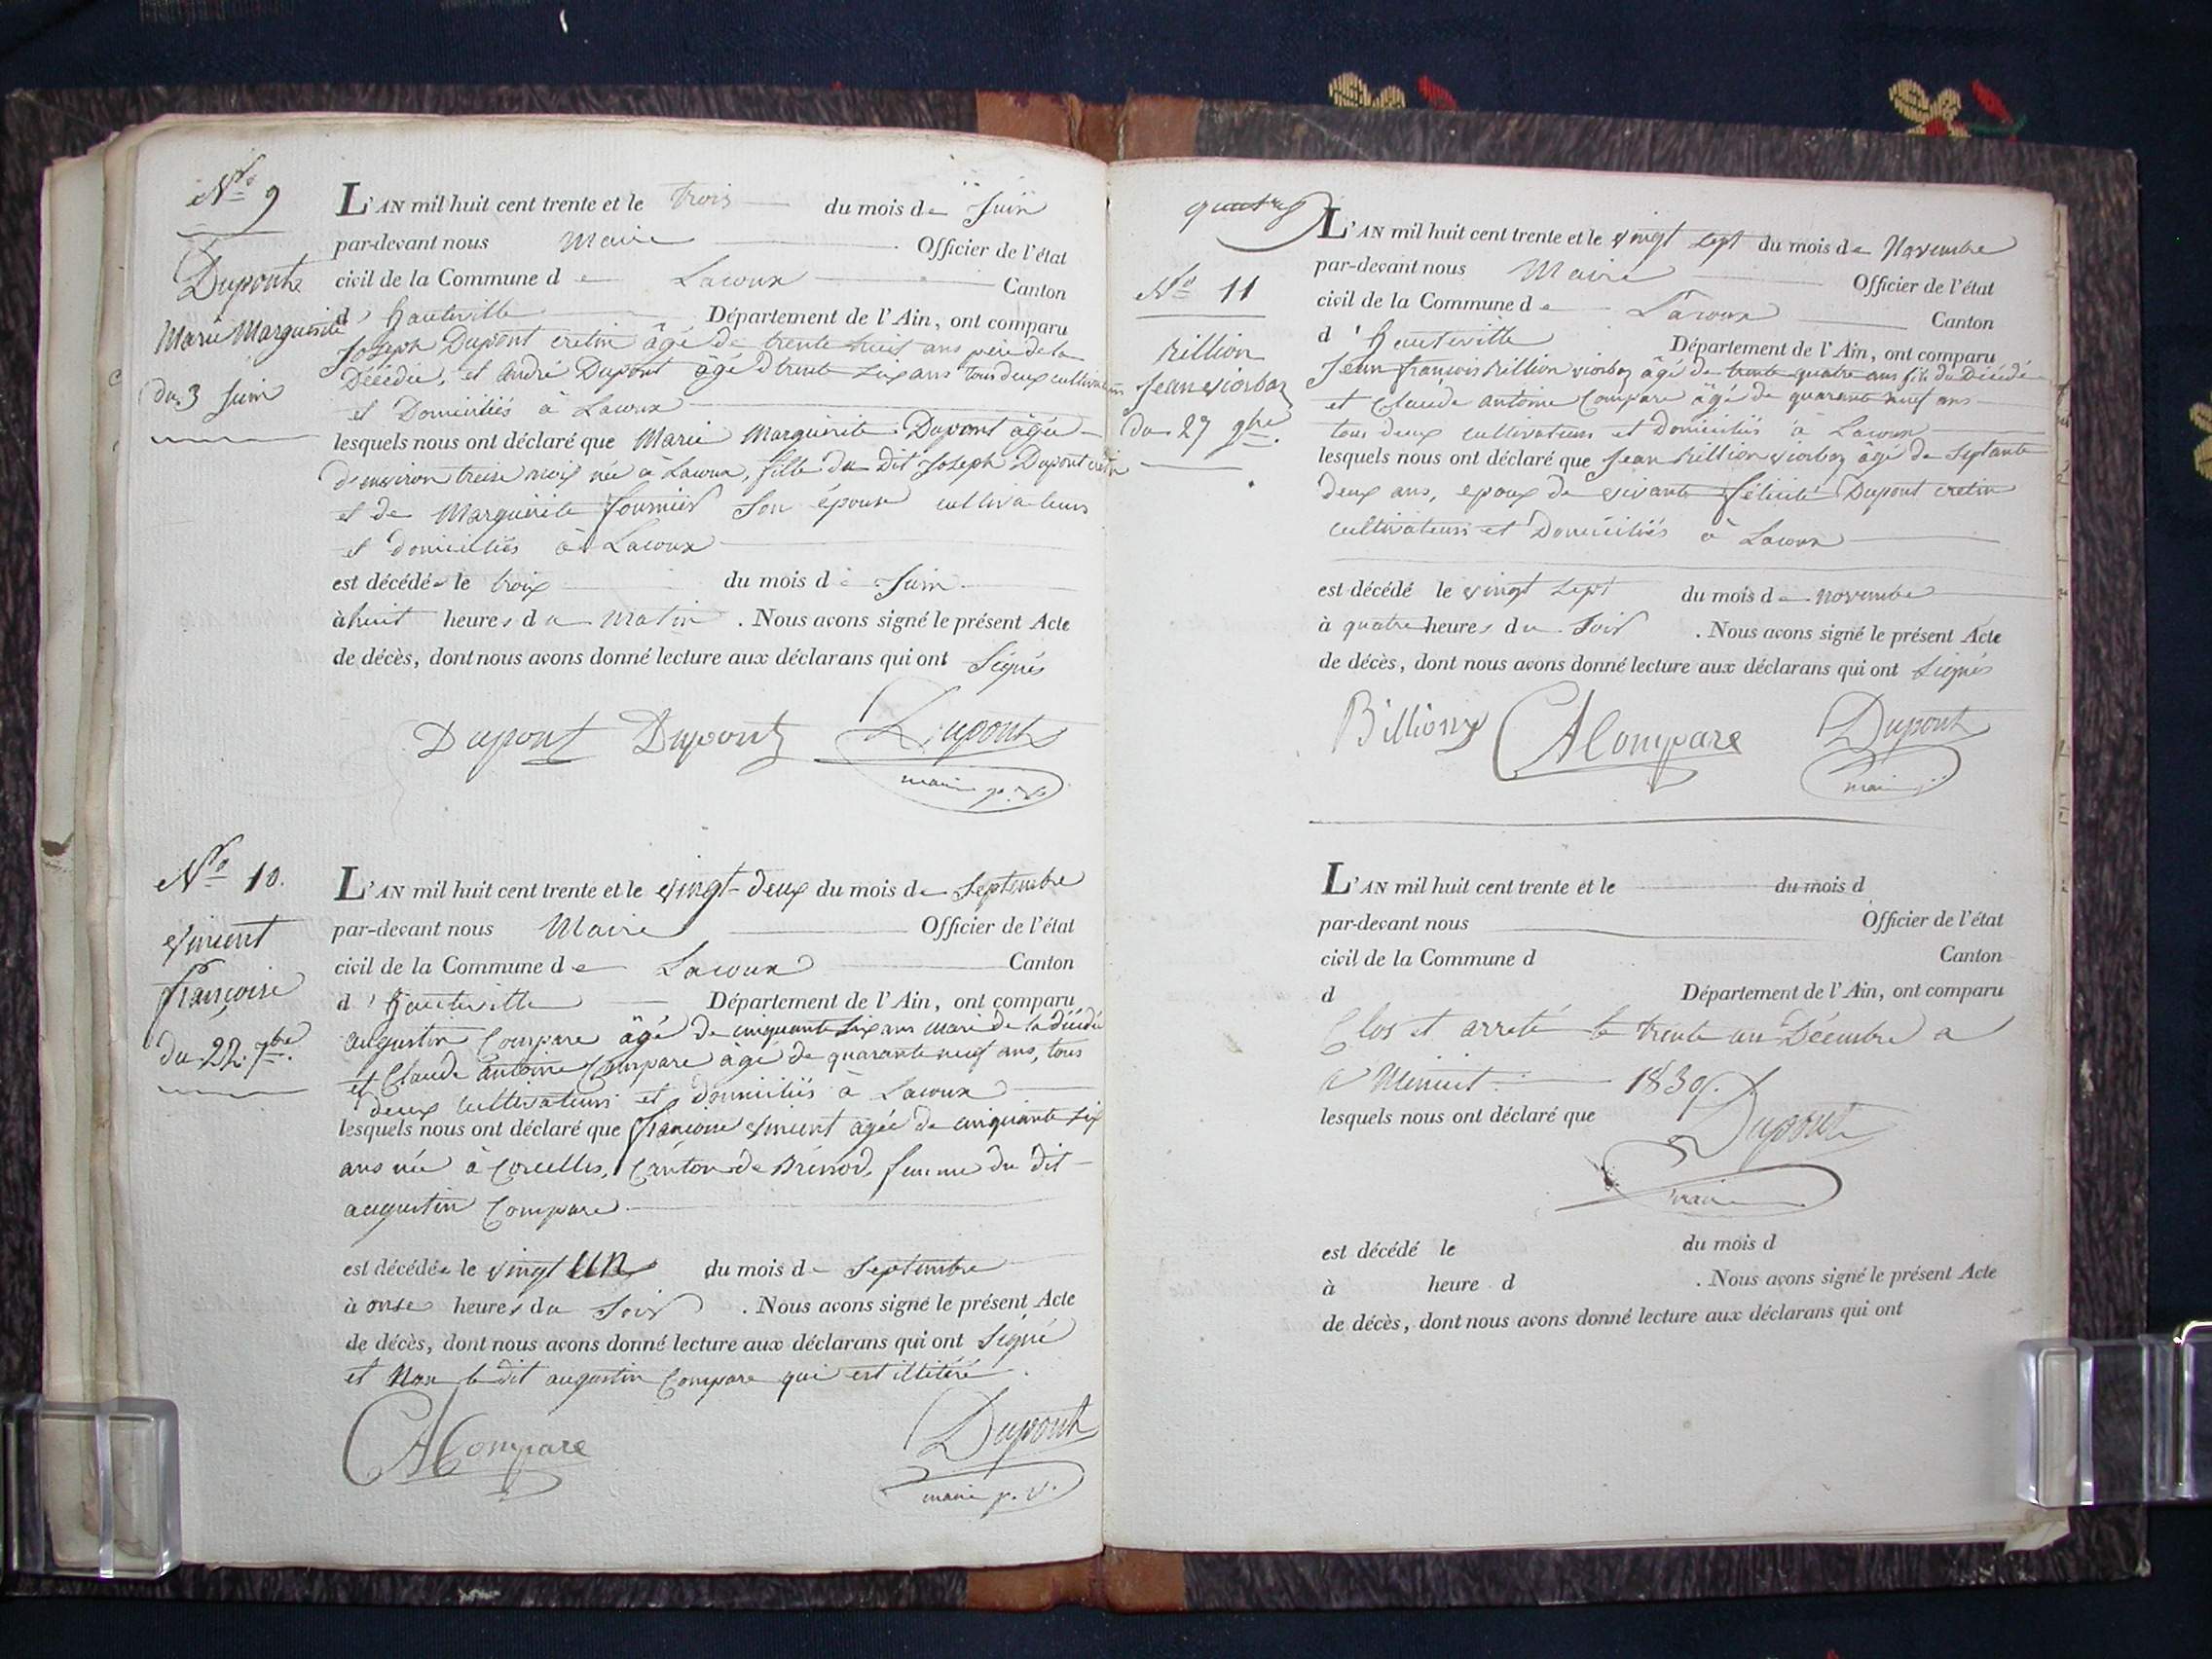 No 9
Dupont
Marie Marguerite
du 3 Juin
L'AN mil huit cent trente et le trois du mois de Juin
par-devant nous Maire Officier de l'état
civil de la Commune de Lacoux Canton
d'hauteville Département de l'Ain, ont comparu
Joseph Dupont cretin âgé de trente huit ans père de la
Décédée, et André Dupont âgé de trente six ans tous deux cultivateurs
et Domiciliés à Lacoux
lesquels nous ont déclaré que Marie Marguerite Dupont âgée
d'environ treise mois née à Lacoux, fille du dit Joseph Dupont cretin
et de Marguerite fournier Son épouse cultivateurs
et domiciliés à Lacoux
est décédée le trois du mois de Juin
à huit heures du Matin. Nous avons signé le présent Acte
de décès, dont nous avons donné lecture aux déclarans qui ont Signés
Dupont Dupont Dupont
maire
No 10.
Vincent
françoise
du 22 7bre
L'AN mil huit cent trente et le vingt-deux du mois de Septembre
par-devant nous Maire Officier de l'état
civil de la Commune de Lacoux Canton
d'hauteville Département de l'Ain, ont comparu
augustin Compare âgé de cinquante six ans mari de la décédée
et Claude antoine Compare âgé de quarante neuf ans, tous
deux cultivateurs et domiciliés à Lacoux
lesquels nous ont déclaré que françoise Vincent agée de cinquante six
ans née à Corcelles, Canton de Brénod, femme du dit
augustin Compare
est décédée le vingt un du mois de Septembre
à onse heures du Soir. Nous avons signé le présent Acte
de décès, dont nous avons donné lecture aux déclarans qui ont Signé
et Non le dit augustin Compare qui est illitéré.
CACompare Dupont
maire
quatre
No 11
Billion
Jean
du 27 9bre.
L'AN mil huit cent trente et le vingt sept du mois de Novembre
par-devant nous Maire Officier de l'état
civil de la Commune de Lacoux Canton
d'hauteville Département de l'Ain, ont comparu
Jean françois Billion âgé de trente quatre ans fils du Décédé
et Claude antoine Compare âgé de quarante neuf ans
tous deux cultivateurs et domiciliés à Lacoux
lesquels nous ont déclaré que Jean Billion âgé de septante
deux ans, epoux de vivante félicité Dupont cretin
cultivateurs et Domiciliés à Lacoux
est décédé le vingt sept du mois de novembre
à quatre heures du Soir. Nous avons signé le présent Acte
de décès, dont nous avons donné lecture aux déclarans qui ont Signés
Billion CACompare Dupont
maire
L'AN mil huit cent trente et le du mois d
par-devant nous Officier de l'état
civil de la Commune d Canton
d Département de l'Ain, ont comparu
Clos et arreté le trente un Décembre a
Minuit 1839.
lesquels nous ont déclaré que Dupont
maire
est décédé le du mois d
à heure d. Nous avons signé le présent Acte
de décès, dont nous avons donné lecture aux déclarans qui ont